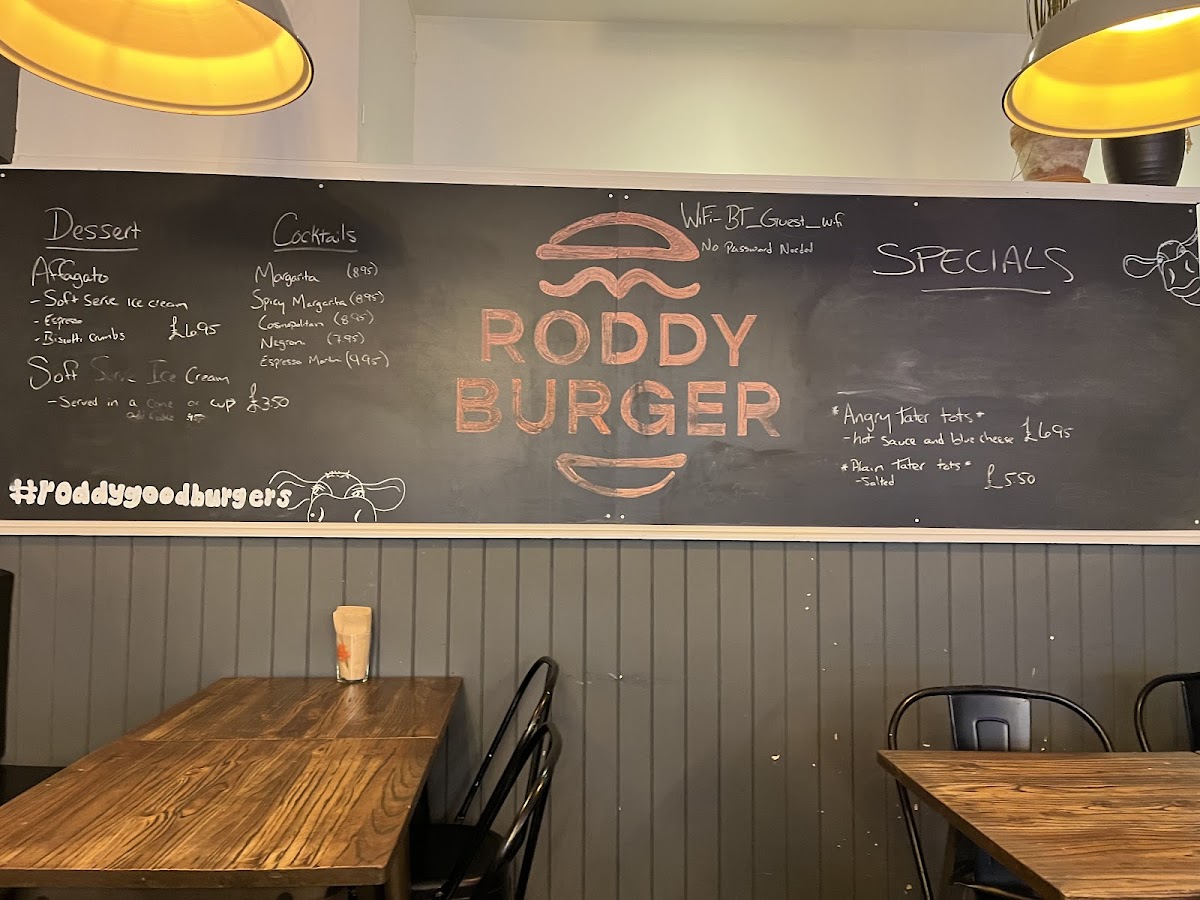 Dessert
Affagato
- Soft Serve Ice cream
- Espresso
- Biscotti Crumbs £6.95
Soft Serve Ice Cream
- Served in a Cone or cup £3.50
#roddygoodburgers
Cocktails
Margarita (8.95)
Spicy Margarita (8.95)
Cosmopolitan (8.95)
Negroni (7.95)
Espresso
RODDY
BURGER
WiFi-BT_Guest_wifi
No Password Needed
SPECIALS
*Angry tater tots*
- hot sauce and blue cheese £6.95
*Plain tater tots*
- Salted £5.50